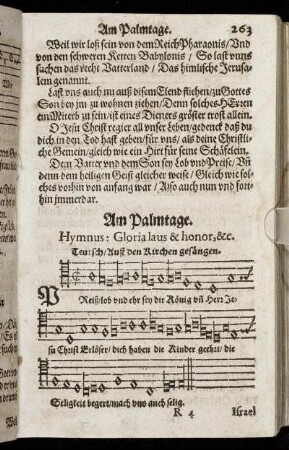 Am Palmtage. 263
Weil wir loß sein von dem Reich Pharaonis / Vnd
von den schweren Ketten Babylonis / So last vnns
suchen das recht Vatterland / Das himlische Jerusa-
lem genannt.
Last vns auch nu auß disem Elend fliehen / zu Gottes
Son bey jm zu wohnen ziehen / Denn solches HErren
ein Miterb zu sein / ist eines Dieners gröster trost allein.
O Jesu Christ regier all vnser leben / gedenck daß du
dich in den Tod hast geben / für vns / als deine Christli-
che Gemein / gleich wie ein Hirt für seine Schäfelein.
Dem Vatter vnd dem Son sey Lob vnd Preise / Vñ
denn dem heiligen Geist gleicher weise / Gleich wie sol-
ches vorhin von anfang war / Also auch nun vnd fort-
hin jmmerdar.
Am Palmtage.
Hymnus: Gloria laus & honor, &c.
Teutsch / Auß den Kirchen gesängen.
PReiß / lob vnd ehr sey dir König vñ Herr Je-
su Christ Erlöser / dich haben die Kinder geehrt / die
Seligkeit begert / mach vns auch selig.
R 4 Israel